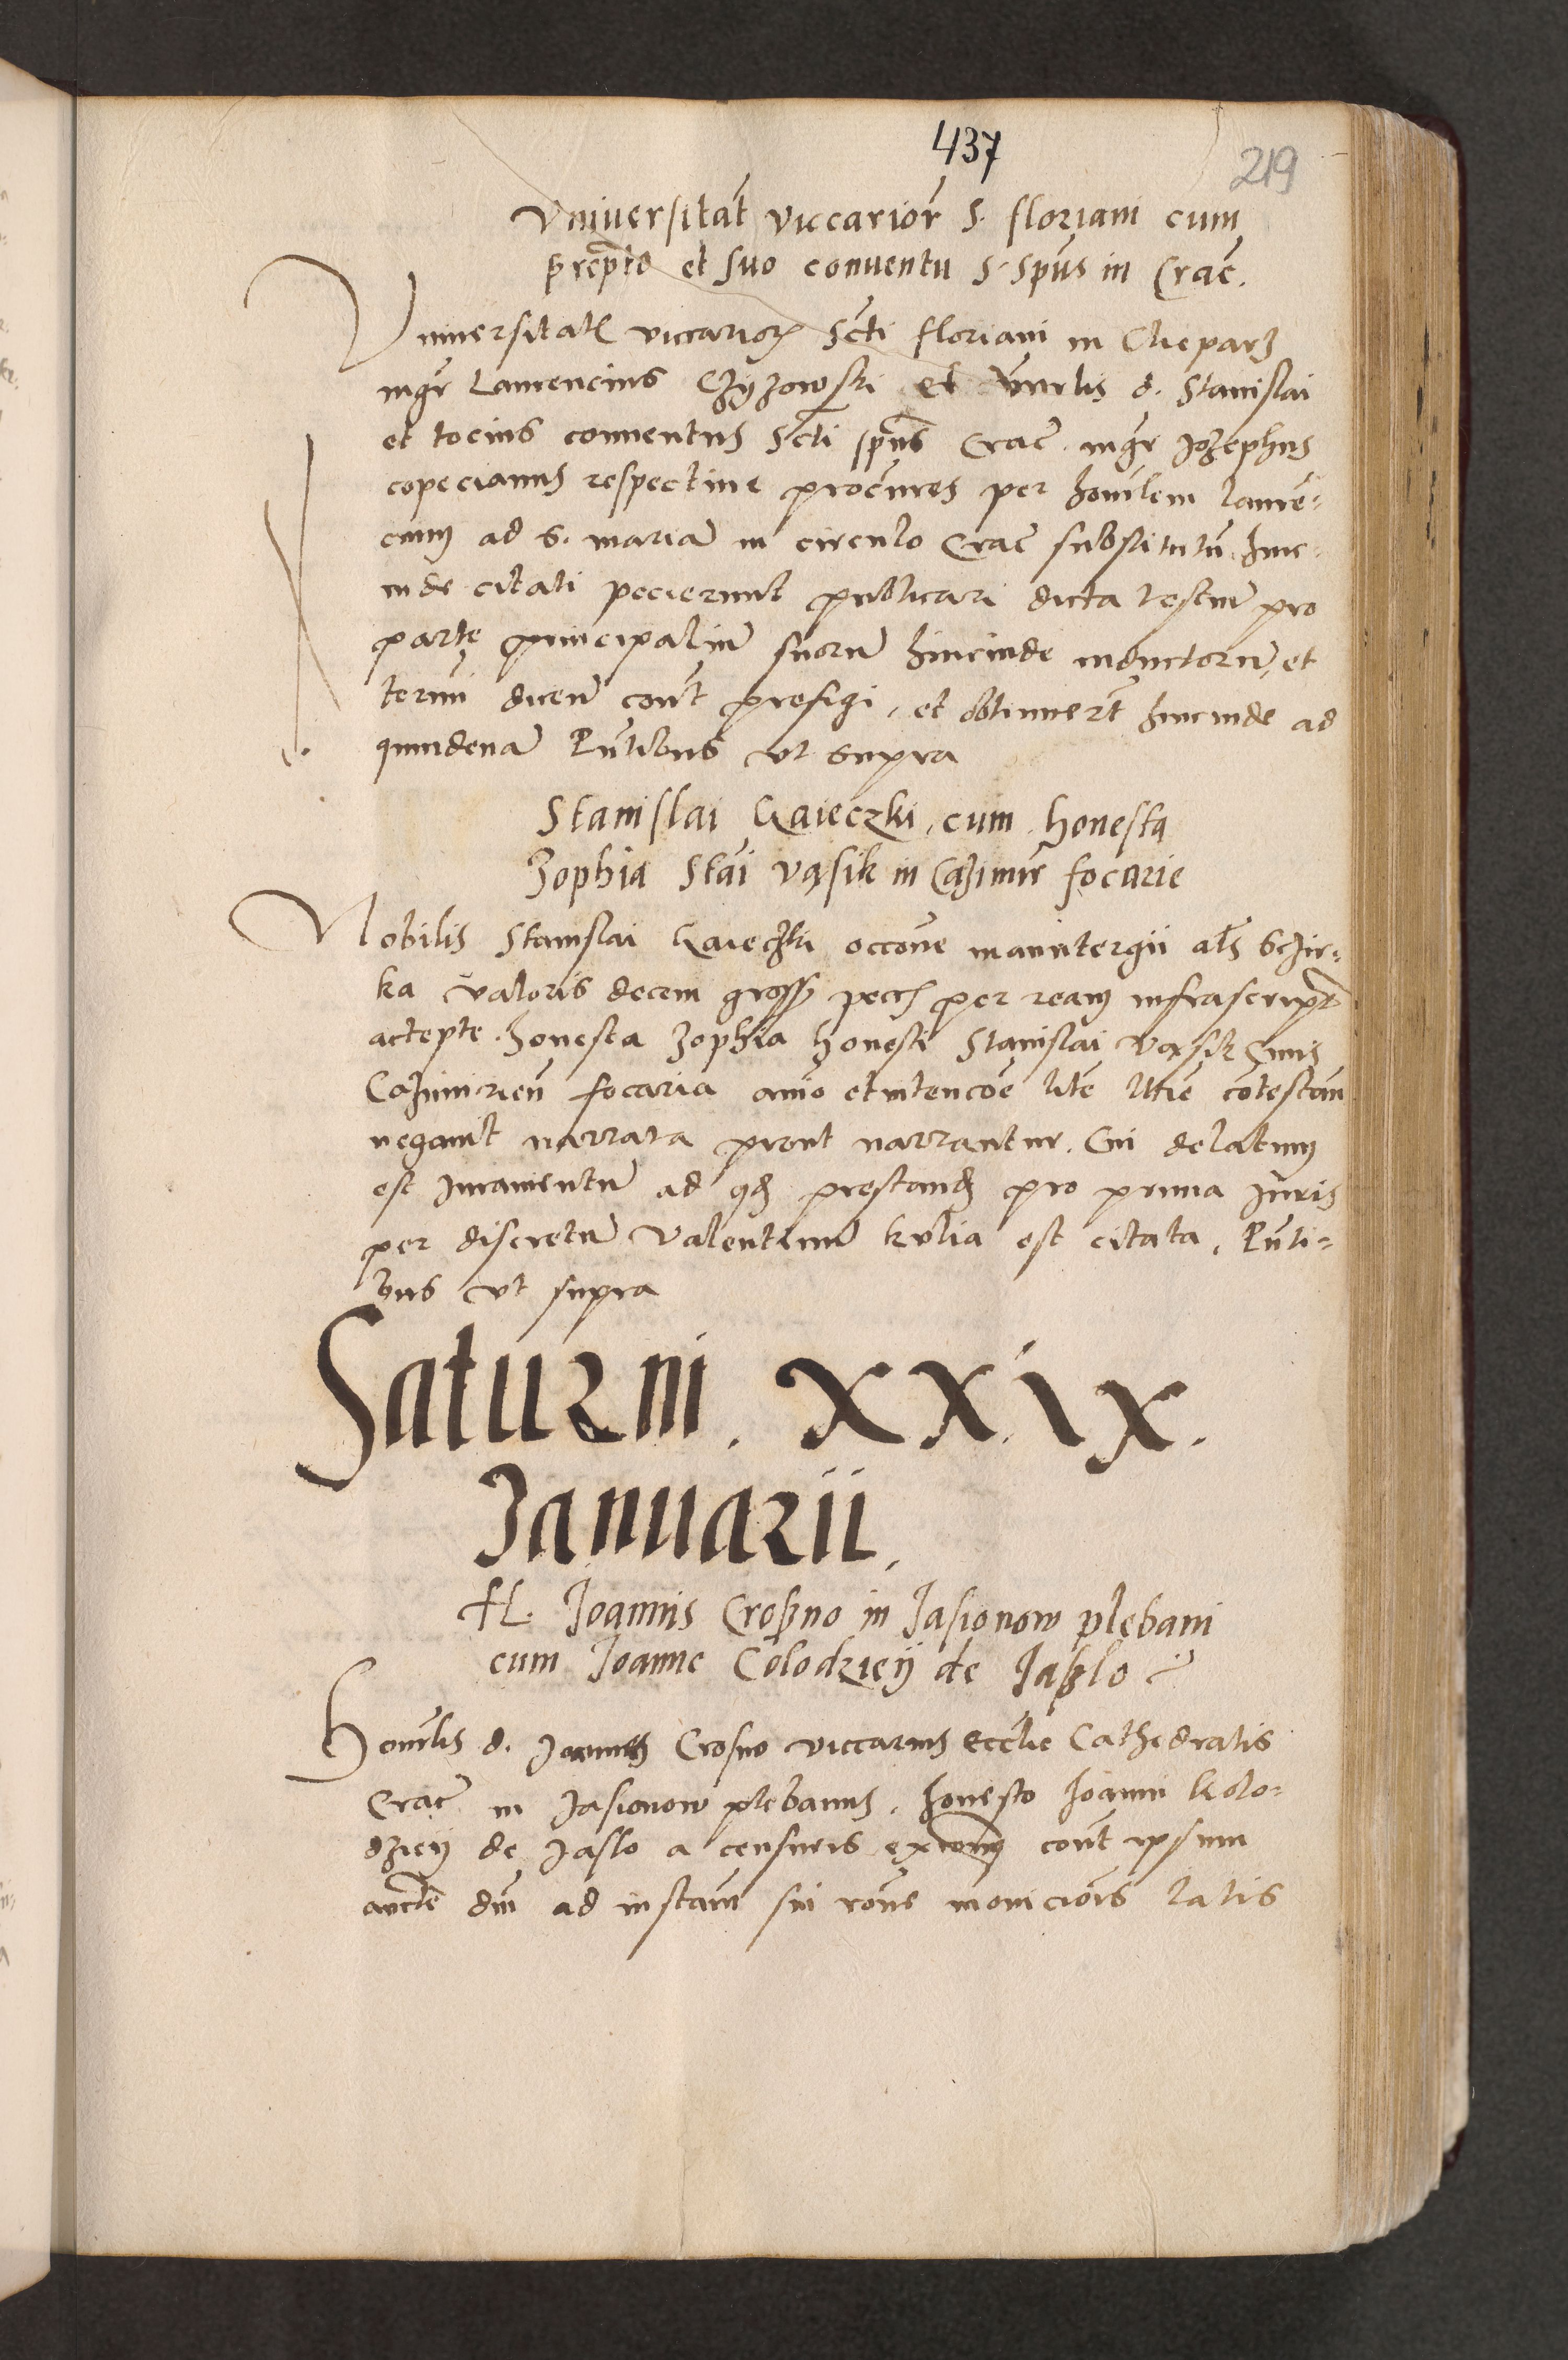 437
219
Vniuersitat̄ viccarior̄ S. floriani cum
p̄rep̄to et suo conuentu S. Sp̄us in Crac̄.
Vniuersitatis viccariorꝫ Sc̄ti floriani in Cleparz
mgr̄ Laurencius Czyzowski et venrl̄is d. Stanislai
et tocius conuentus Sc̄ti sp̄us Crac̄ mgr̄ Jozephus
copecianus respectiue procūres per honrl̄em lauren̄=
cium ad S. mariā in circulo Crac̄ substitutū hinc
inde citati pecierunt publicari dicta testiū pro
parte principaliū suorū hincinde inductorū, et
termī dicen̄ cont̄ prefigi, et obtinuer̄t hincinde ad
quindenā P̄ntibus vt supra
Stanislai Gaieczki, cum honesta
Zophia Stāi vąsik in Cazimir̄ focarie
Nobilis Stanislai Gaieczki occōne manutergii al̄s Sczir=
ka valoris decem gross pecc̄ per ream infrascrip̄t
accepte. honesta Zophia honesti Stanislai Vąsik Ciuis
Cazimirien̄ focaria aīo et intencōe litē l̄tīe cōtestan̄
negauit narrata prout narrantur. Cui delatum
est Juramentū ad qđ prestanđ pro prima Juris
per discretū Valentinū kvlia est citata, P̄nti=
bus vt supra
Saturni. XXIX.
Januarii.
H. Joannis Croßno in Jasionow plebani
cum Joanne Colodzieÿ de Jaßlo
Honrl̄is d. Joannes Crosno viccarius eccl̄ie Cathedralis
Crac̄ in Jasionow plebanus, honesto Joanni kolo=
dzieÿ de Jaslo a censuris excōnis cont̄ ipsum
auct̄e dn̄i ad instan̄ sui rōne monicionis latis